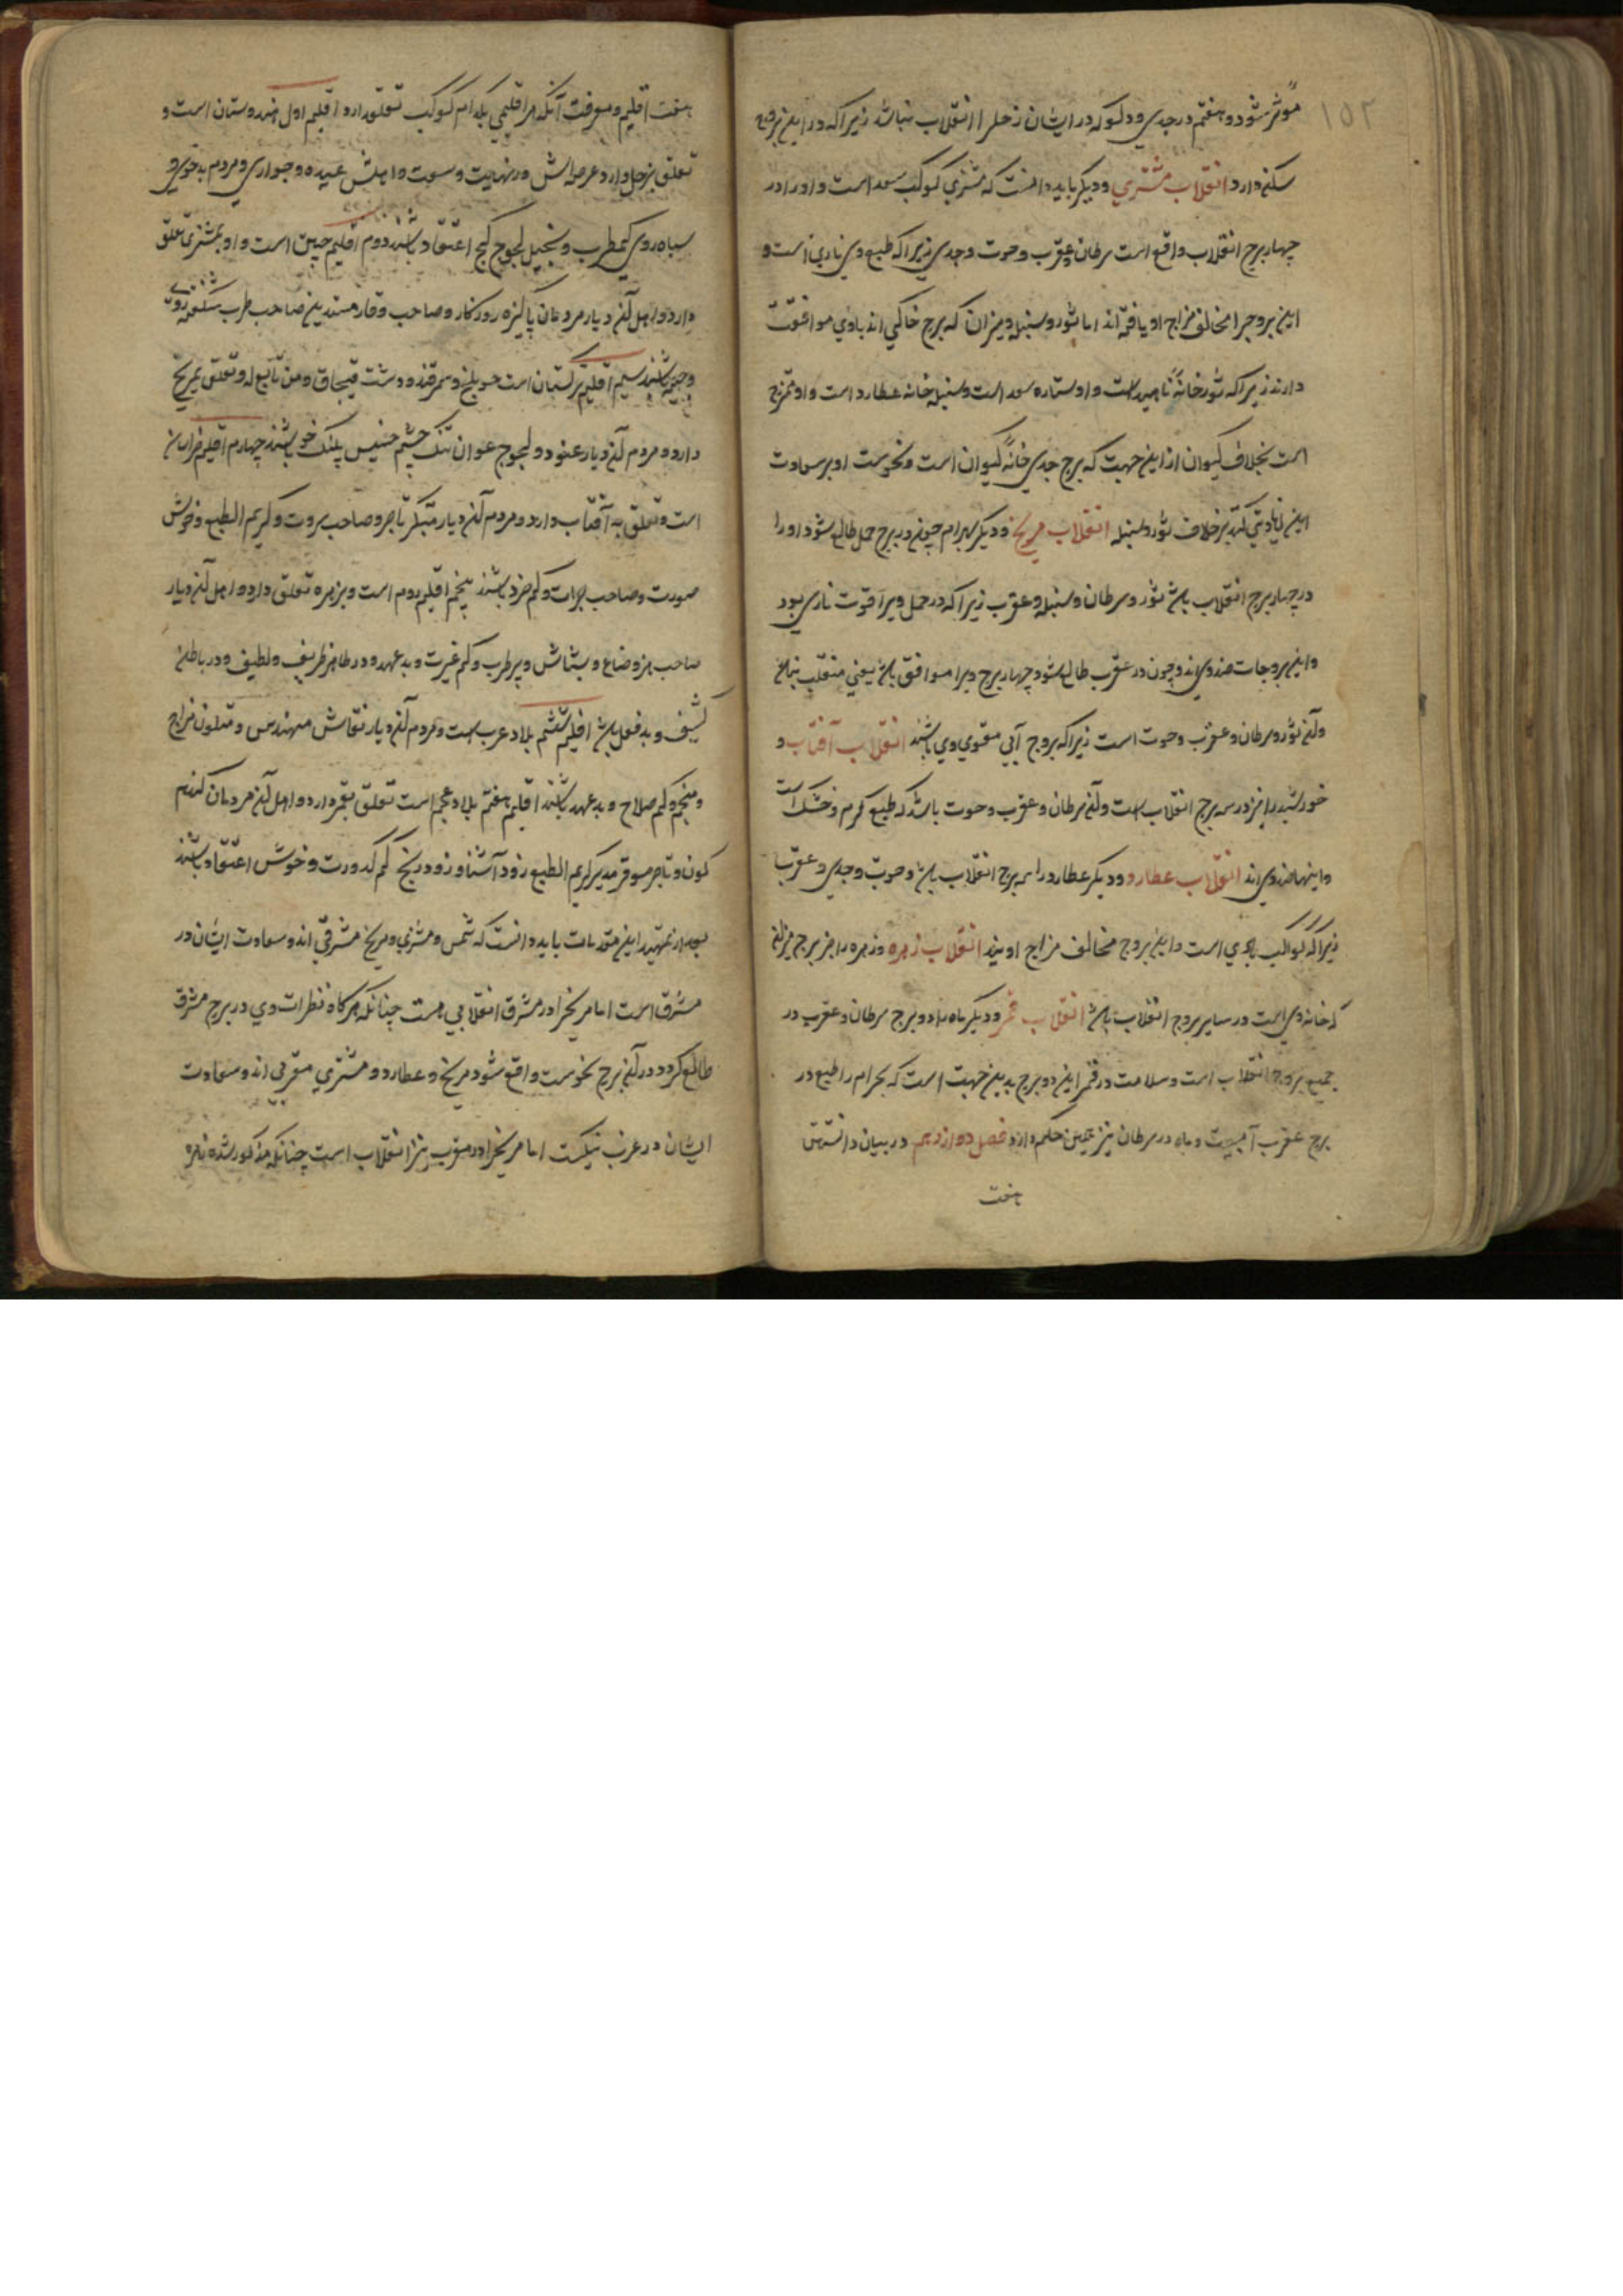 ۱۵۲
مؤثر شود و هفتم در جدی و دلو که در ایشان زحل را انقلاب نباشد زیرا که در این بروج
سکنه دارد انقلاب مشتری و دیگر باید دانست که مشتری کوکب سعد است و او را در
چهار برج انقلاب واقع است سرطان و عقرب و حوت و جدی زیرا که طبع وی ناری است و
این بروج را مخالف مزاج او یافته اند اما ثور و سنبله و میزان که برج خاکی اند با وی موافقت
دارند زیرا که ثور خانهٔ ناهید است و او ستاره سعد است و سنبله خانه عطارد است و او ممتزج
است بخلاف کیوان از این جهت که برج جدی خانهٔ کیوان است و نحوست او بر سعادت
این زیادتی کند بر خلاف ثور و سنبله انقلاب مریخ و دیگر بهرام چون در برج حمل طالع شود او را
در چهار برج انقلاب باشد ثور و سرطان و سنبله و عقرب زیرا که در حمل ویرا قوت ناری بود
و این بروجات ضد وی اند و چون در عقرب طالع شود چهار برج ویرا موافق باشد یعنی منقلب نباشد
و آن ثور و سرطان و عقرب و حوت است زیرا که بروج آبی مقوی وی باشند انقلاب آفتاب و
خورشید را نیز در سه برج انقلاب است و آن سرطان و عقرب و حوت باشد که طبع گرم و خشک است
و اینها ضد وی اند انقلاب عطارد و دیگر عطارد را سه برج انقلاب باشد و حوت و جدی و عقرب
زیرا که کواکب بادی است و این بروج مخالف مزاج اویند انقلاب زهره و زهره را جز برج میزان
که خانه وی است در سایر بروج انقلاب باشد انقلاب قمر و دیگر ماه را دو برج سرطان و عقرب در
جمیع بروج انقلاب است و سلامت در قمر این دو برج بدین جهت است که بهرام را طبع در
برج عقرب آبیست و ماه در سرطان نیز همین حکم دارد فصل دوازدهم در بیان دانستن
هفت
هفت اقلیم و معرفت آنکه هر اقلیمی بکدام کوکب تعلق دارد اقلیم اول هندوستان است و
تعلق بزحل دارد عرصه اش در نهایت وسعت و اهلش عبیده و جواری و مردم بدخوی و
سیاه روی کم طرب و بخیل لجوج کج اعتقاد باشند دوم اقلیم چین است و او بمشتری تعلق
دارد و اهل آن دیار مردمان پاکیزه روزکار و صاحب وقار متدین صاحب طرب شکفته روی
و جیه باشند سیم اقلیم ترکستان است چو بلخ و سمرقند و دشت قبچاق و من تابع له و تعلق بمریخ
دارد و مردم آن دیار عنود و لجوج عوان تنک چشم خسیس پلنک خو باشند چهارم اقلیم خراسان
است و تعلق به آفتاب دارد و مردم آن دیار متکبر تاجر و صاحب ثروت و کریم الطبع و خوش
صورت و صاحب جرات و کم خرد باشند پنجم اقلیم روم است و بزهره تعلق دارد و اهل آن دیار
صاحب بزم و ضاع و بشاش و پر طرب و کم غیرت و بد عهد و در ظاهر ظریف و لطیف و در باطن
کثیف و بد فعل باشد اقلیم ششم بلاد عرب است و مردم آن دیار نقاش مهندس و متلون مزاج
و منجم و کم صلاح و بد عهد باشند اقلیم هفتم بلاد عجم است تعلق بقمر دارد و اهل آن مردمان کندم
کون و تاجر موقر مدبر کریم الطبع زود آشنا و زود رنج کم کدورت و خوش اعتقاد باشند
بعد از تمهید این مقدمات باید دانست که شمس و مشتری و مریخ مشرقی اند و سعادت ایشان در
مشرق است اما مریخ را در مشرق انقلابی هست چنانکه هرکاه نظرات وی در برج مشرق
طالع کردد در آن برج نحوست واقع شود مریخ و عطارد و مشتری مغربی اند و سعادت
ایشان در غرب نیکست اما مریخ را در مغرب نیز انقلاب است چنانکه مذکور شد